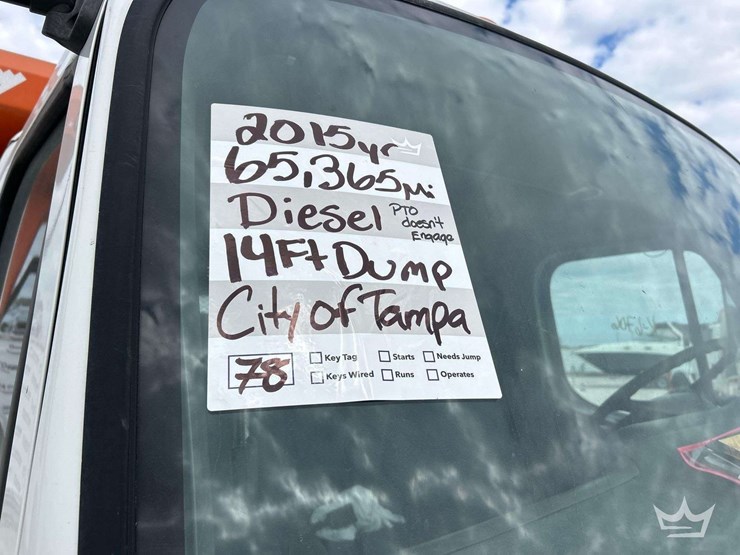 2015yr
65,365mi
Diesel PTO doesn't Engage
14Ft Dump
City of Tampa
78
Key Tag Starts Needs Jump
Keys Wired Runs Operates